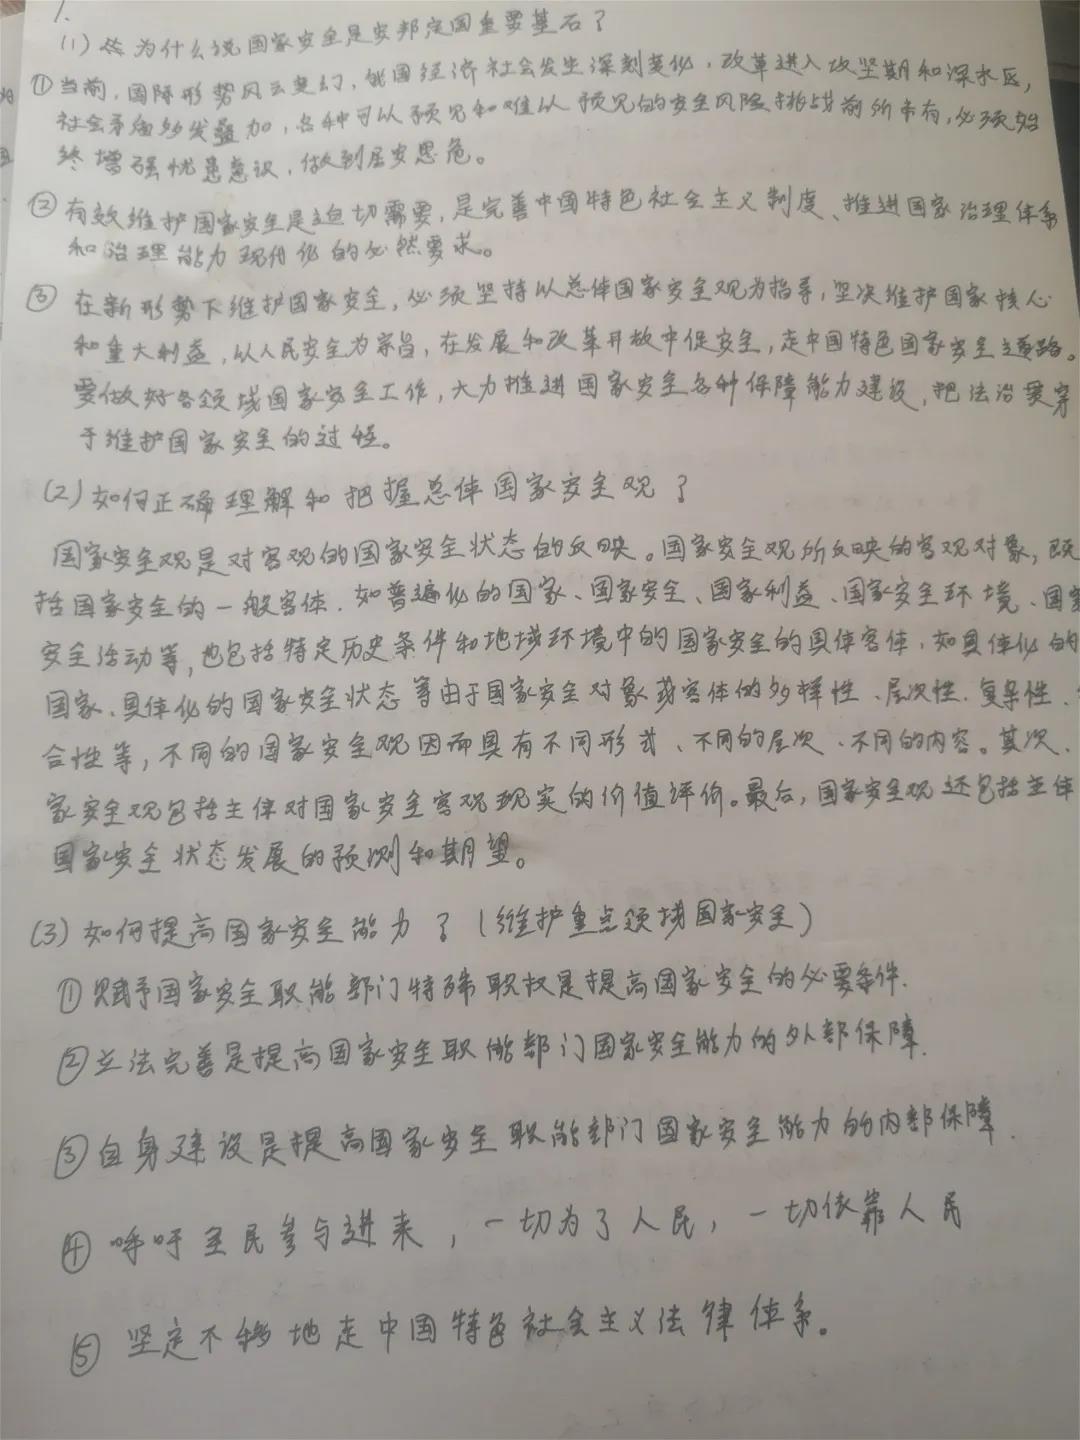 1.
(1) 为什么说国家安全是安邦定国重要基石?
①当前,国际形势风云变幻,我国经济社会发生深刻变化,改革进入攻坚期和深水区,
社会矛盾多发叠加,各种可以预见和难以预见的安全风险挑战前所未有,必须始
终增强忧患意识,做到居安思危。
②有效维护国家安全是迫切需要,是完善中国特色社会主义制度、推进国家治理体系
和治理能力现代化的必然要求。
③在新形势下维护国家安全,必须坚持以总体国家安全观为指导,坚决维护国家核心
和重大利益,以人民安全为宗旨,在发展和改革开放中保安全,走中国特色国家安全道路。
要做好各领域国家安全工作,大力推进国家安全各种保障能力建设,把法治贯穿
于维护国家安全的过程。
(2)如何正确理解和把握总体国家安全观?
国家安全观是对客观的国家安全状态的反映。国家安全观所反映的客观对象,既
括国家安全的一般客体,如普遍化的国家、国家安全、国家利益、国家安全环境、国家
安全活动等,也包括特定历史条件和地域环境中的国家安全的具体客体,如具体化的
国家、具体化的国家安全状态等由于国家安全对象或客体的多样性、层次性、复杂性、
合性等,不同的国家安全观因而具有不同形式、不同的层次、不同的内容。其次,
家安全观包括主体对国家安全客观现实的价值评价。最后,国家安全观还包括主体
国家安全状态发展的预测和期望。
(3)如何提高国家安全能力?(维护重点领域国家安全)
①赋予国家安全职能部门特殊职权是提高国家安全的必要条件.
②立法完善是提高国家安全职能部门国家安全能力的外部保障.
③自身建设是提高国家安全职能部门国家安全能力的内部保障.
④呼吁全民参与进来,一切为了人民,一切依靠人民
⑤坚定不移地走中国特色社会主义法律体系。